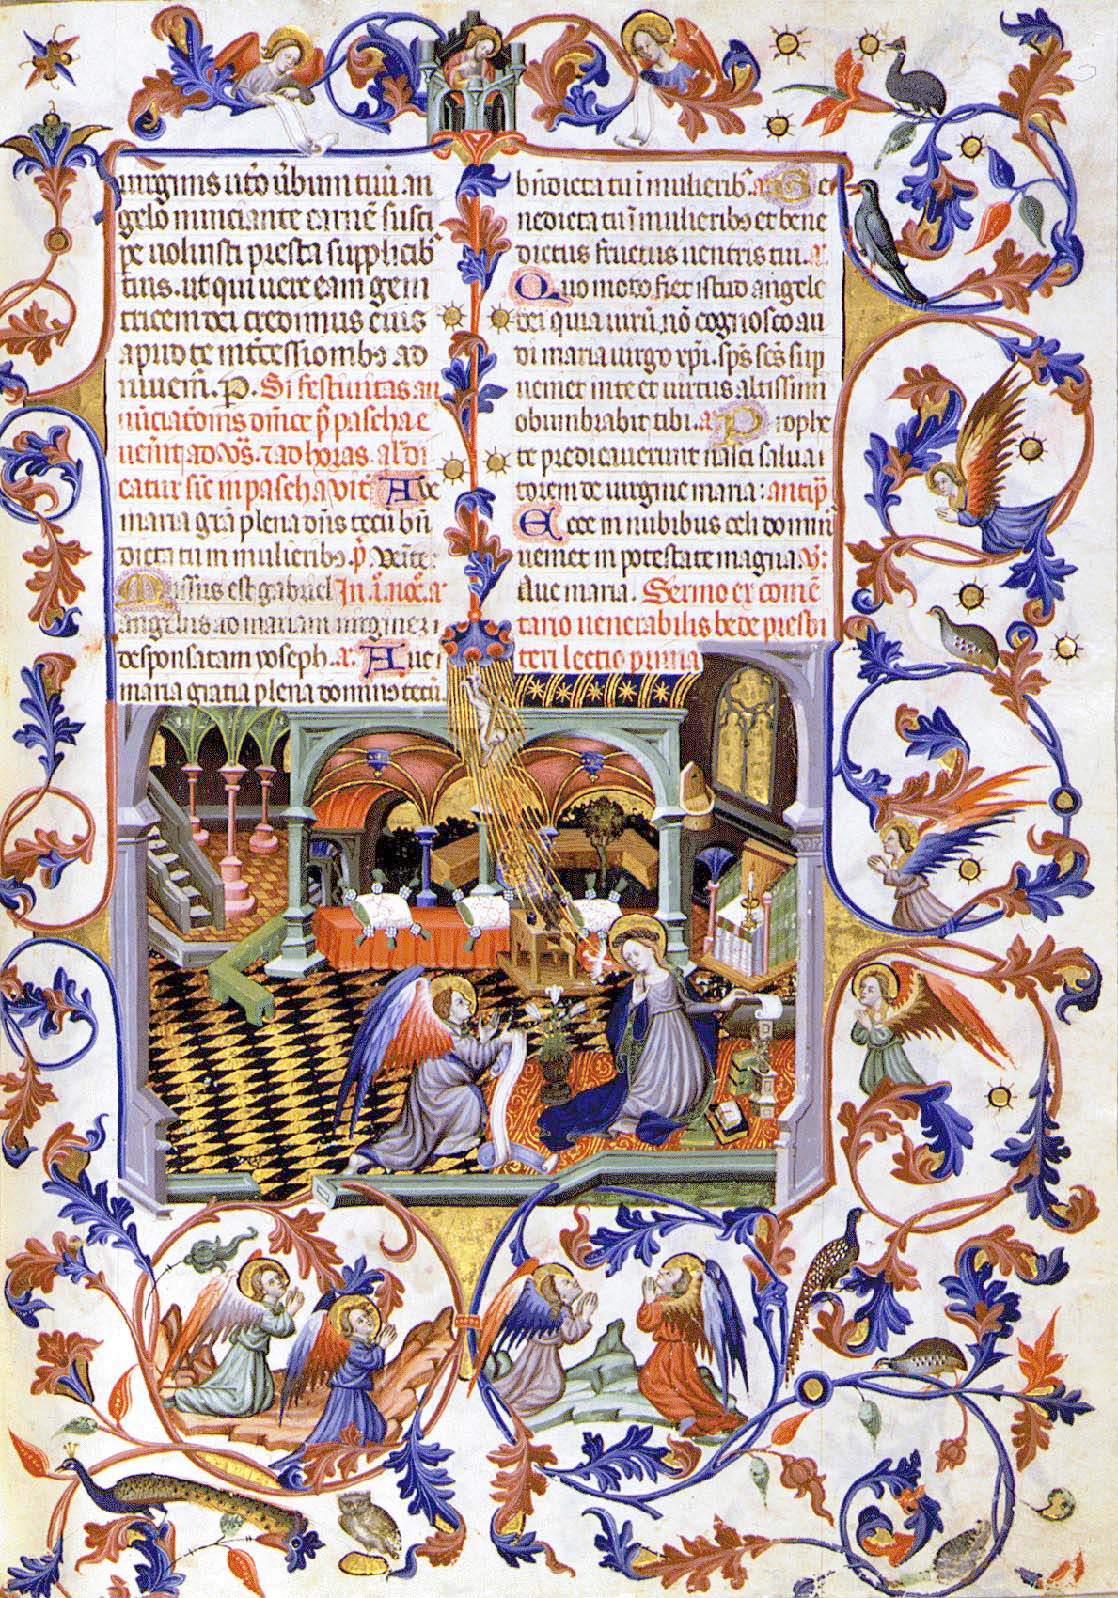 virginis utero verbum tuum an
gelo nunciante carnē susci
pe voluisti presta supplicib
tuis. ut qui vere eam geni
tricem dei credimus eius
apud te intcessionibus ad
iuvem̄. P. Si festivitas an
nūciacōnis dn̄ice p̄ pascha e
ven̄it ad v̄s. ⁊ ad horas. al
catur sic̄ in pascha Ave
maria grā plena dn̄s tecū bn̄
dicta tu in mulieribus p̄.
Missus est gabriel In .a
angelus ad mariam virginez
desponsatam yoseph. a. Ave
maria gratia plena dominus tecū.
bn̄dicta tu ī mulierib. a. Be
nedicta tu ī mulieribus et bene
dictus fructus ventris tui. a.
Quo modo fiet istud angele
dei quia virū nō cognosco au
di maria virgo xp̄i. sp̄s sc̄s sup
veniet in te et virtus altissimi
obumbrabit tibi. a. Prophe
te predicaverunt nasci salva
torem de virgine maria: antip̄
Ecce in nubibus celi domin
veniet in potestate magna. v:
Ave maria. Sermo ex comē
tario venerabilis bede presbi
teri lectio prima